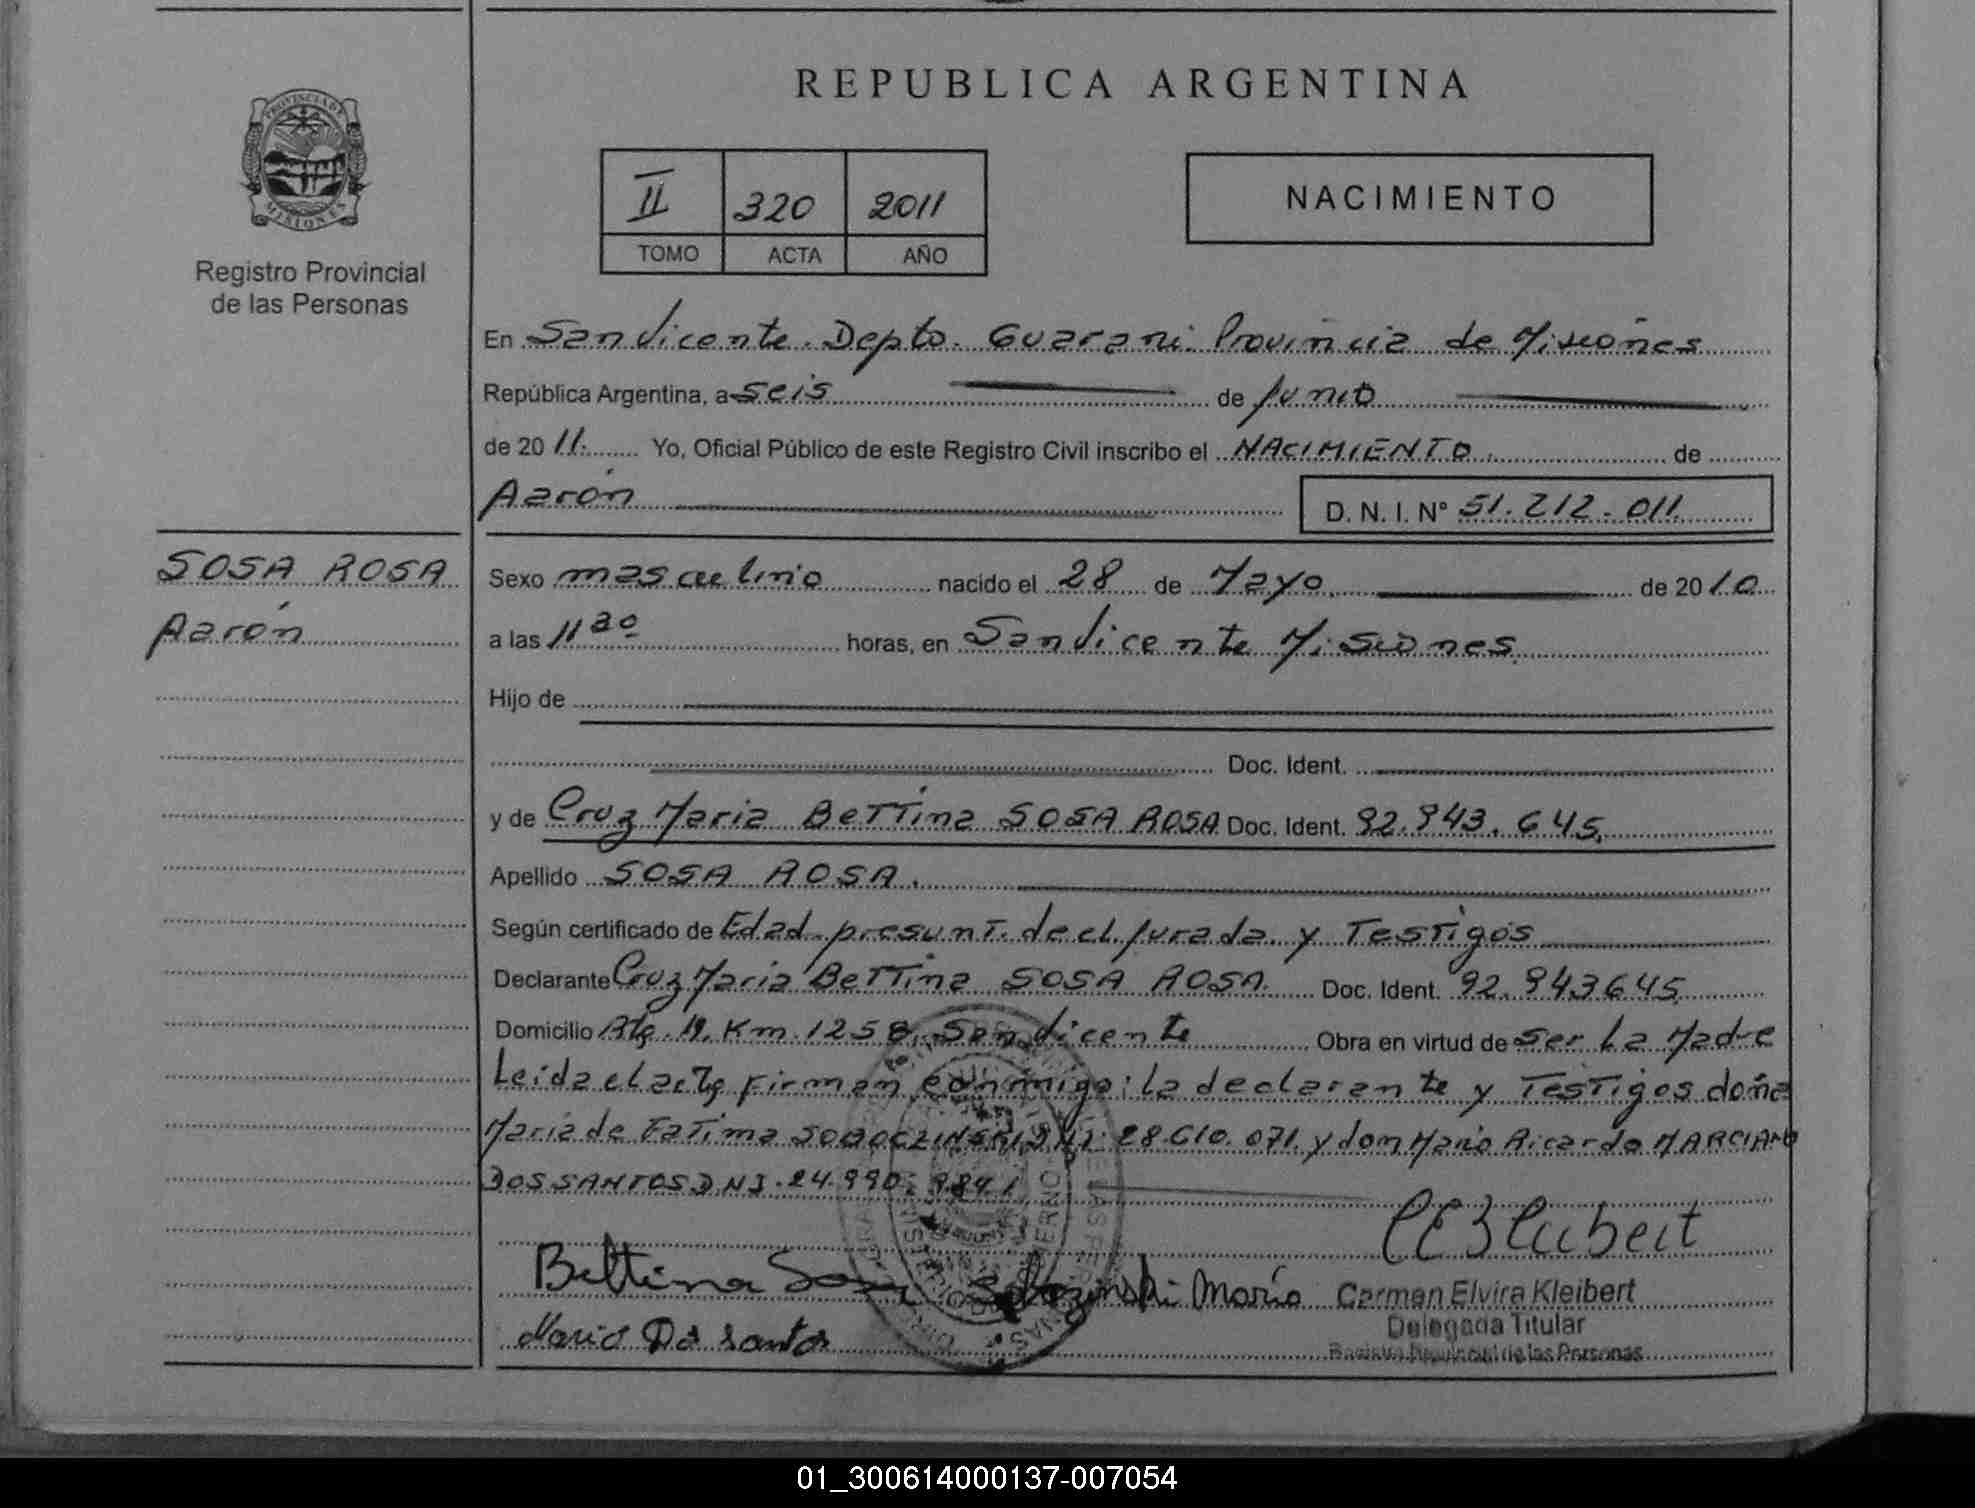 REPUBLICA ARGENTINA
PROVINCIA DE
MISIONES
Registro Provincial
de las Personas
II 320 2011
TOMO ACTA AÑO
NACIMIENTO
En San Vicente. Depto. Guarani. Provincia de Misiones
República Argentina, a seis de Junio
de 2011. Yo, Oficial Público de este Registro Civil inscribo el NACIMIENTO. de
Aarón D. N. I. N° 51.212.011
SOSA ROSA
Aarón
Sexo masculino nacido el 28 de Mayo de 2010
a las 11 30 horas, en San Vicente Misiones.
Hijo de
Doc. Ident.
y de Cruz Maria Bettina SOSA ROSA Doc. Ident. 92.943.645.
Apellido SOSA ROSA.
Según certificado de Edad presunt. decl. Jurada y Testigos
Declarante Cruz Maria Bettina SOSA ROSA. Doc. Ident. 92.943645
Domicilio Rta. 14. Km. 1258. San Vicente Obra en virtud de ser La Madre
Leida el acta firman conmigo: la declarante y Testigos doña
Maria de Fatima SOBOCZINSKI DNI: 28.610.071. y don Mario Ricardo MARCIANO
DOS SANTOS DNI. 24.990.
Bettina Sosa
María
Mario Dos santos
Carmen Elvira Kleibert
Delegada Titular
Registro Provincial de las Personas
01_300614000137-007054